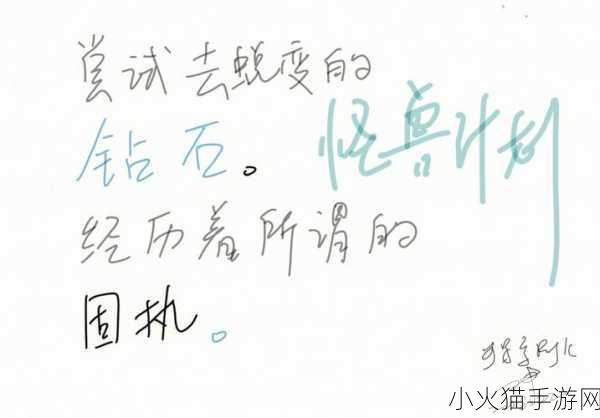 尝试去蜕变的
钻石。
怪兽计划
经历着所谓的
固执。
小火猫手游网